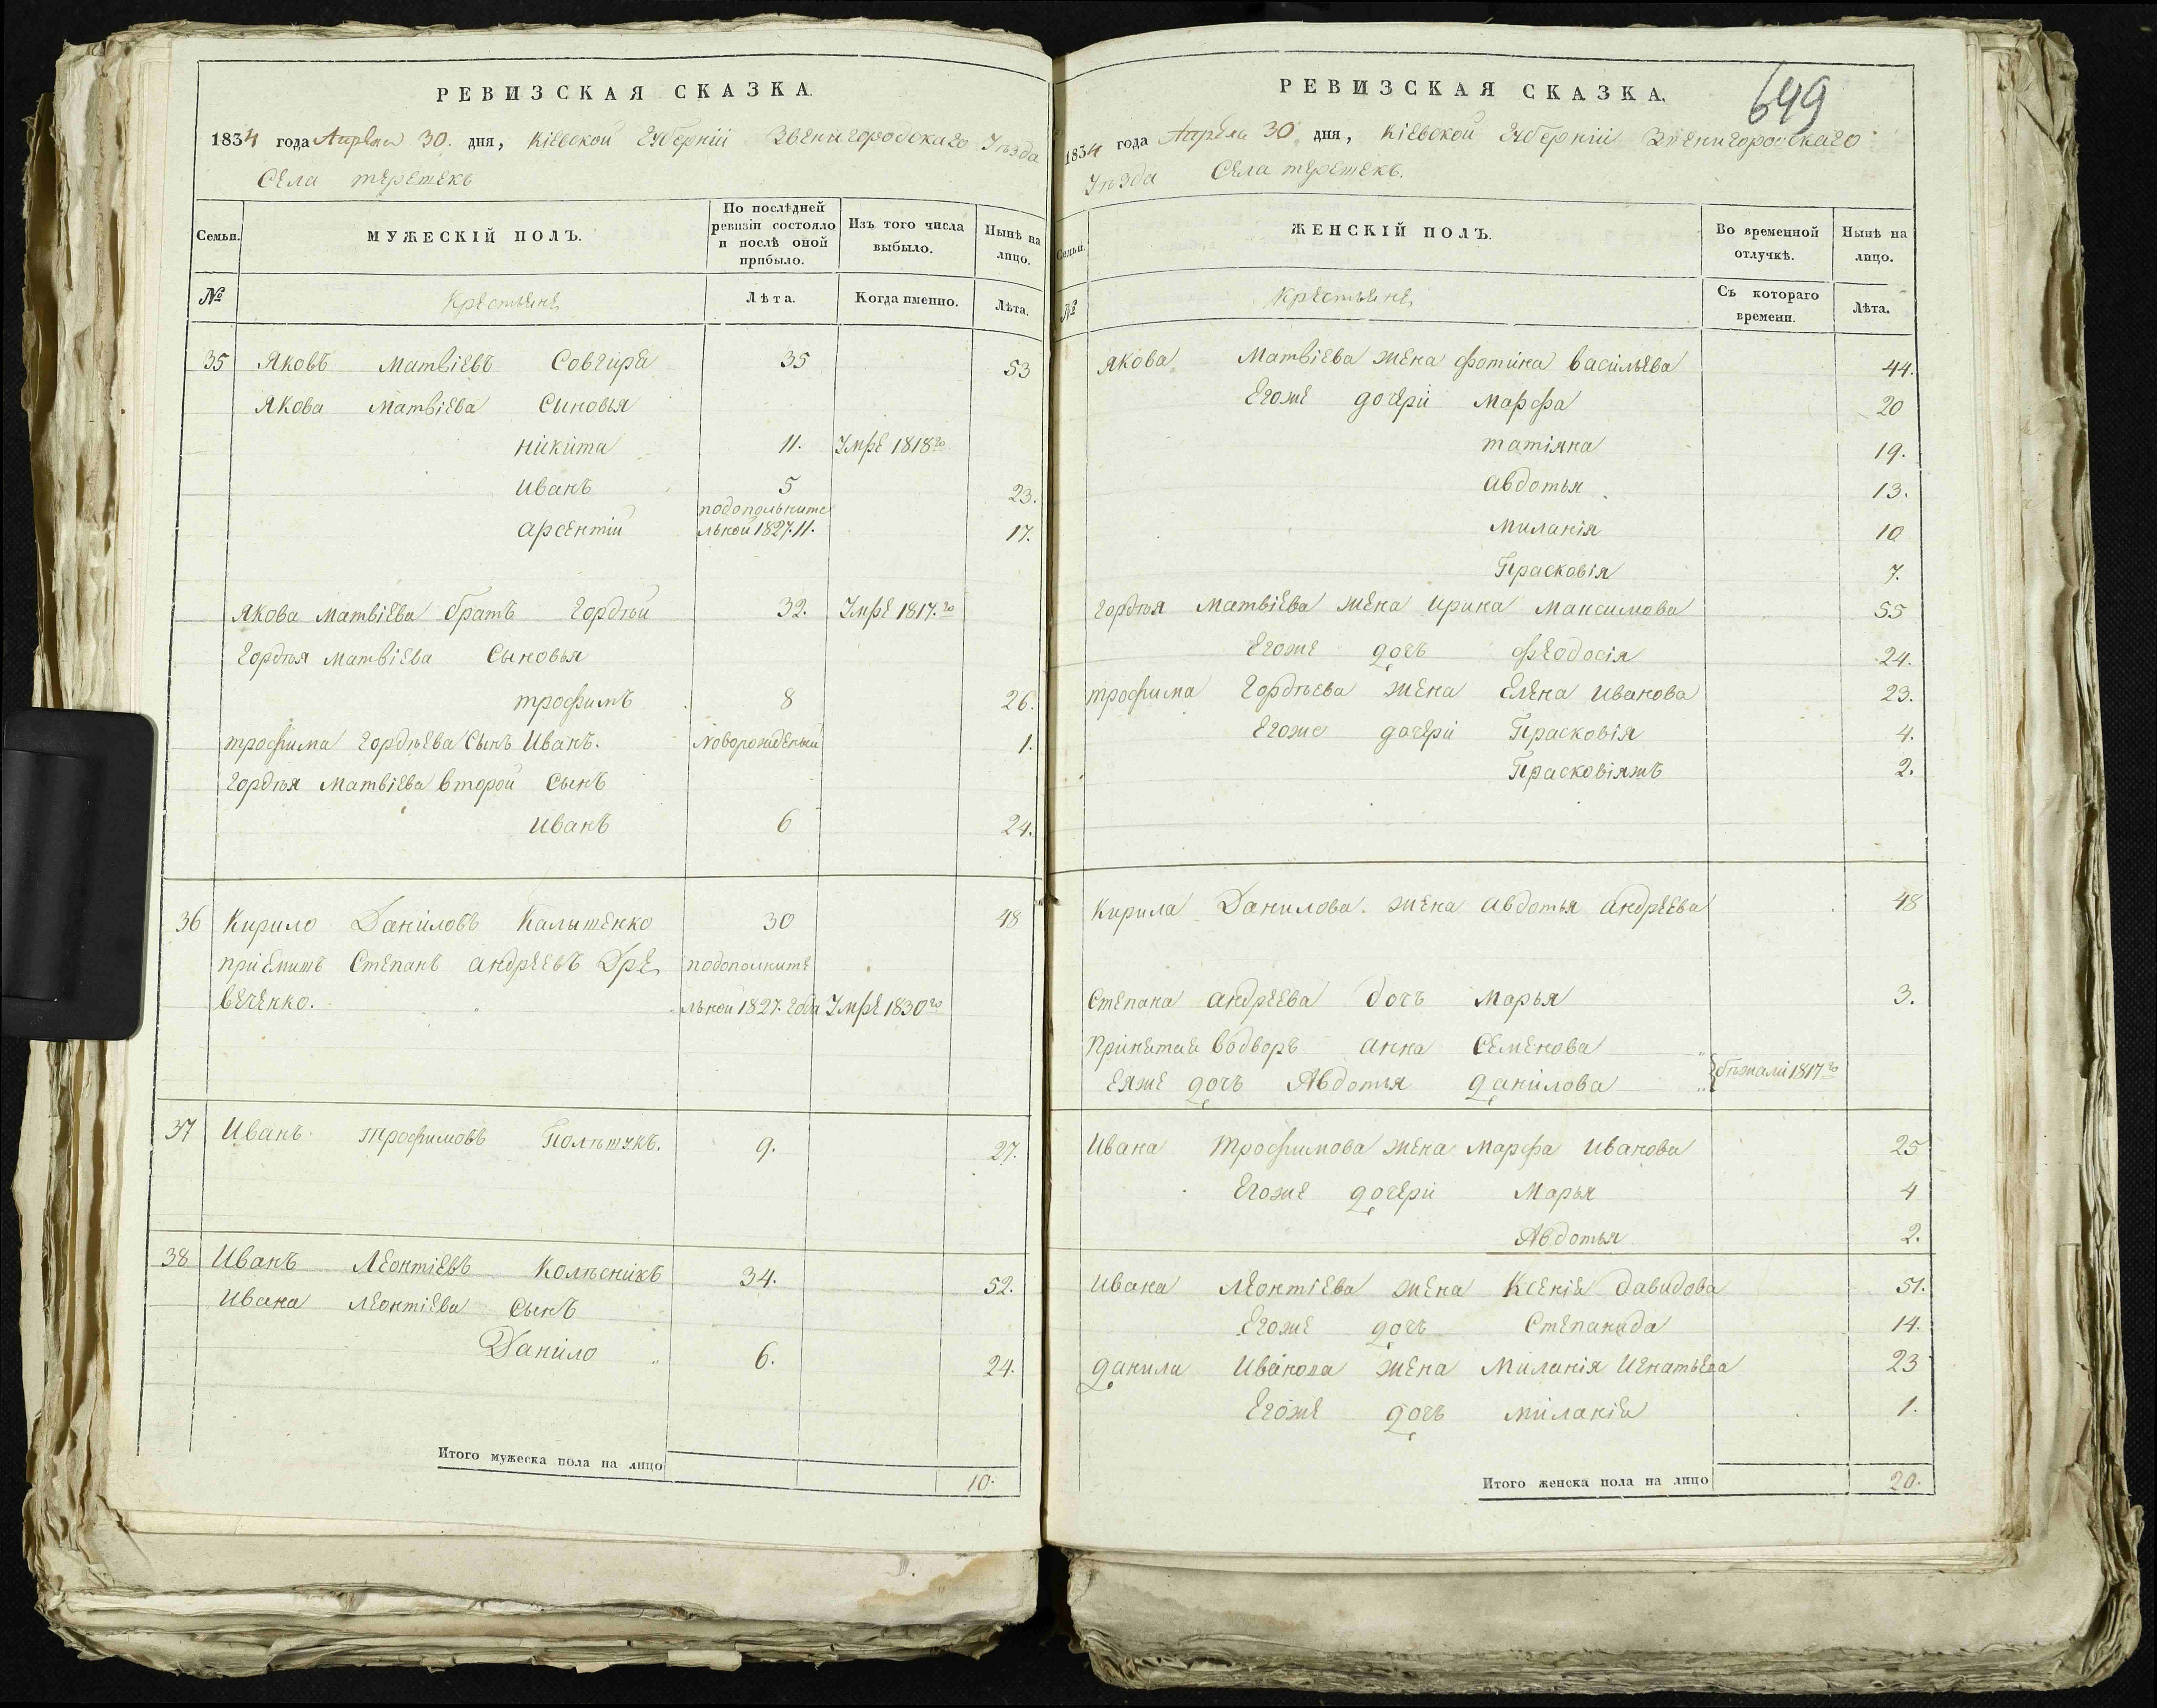 РЕВИЗСКАЯ СКАЗКА.
1834 года Апреля 30. дня, Кіевской Губерніи Звенигородскаго Уѣзда
Села терешекъ
Семьи. МУЖЕСКІЙ ПОЛЪ. По послѣдней ревизіи состояло и послѣ оной прибыло. Изъ того числа выбыло. Нынѣ на лицо.
№ Крестьяне Лѣта. Когда именно. Лѣта.
35 Яковъ Матвіевъ Совгира 35 53
Якова Матвіева Сыновья
Никита 11. Умре 1818го
Иванъ 5 23.
подополните
Арсентій льной 1827. 11. 17.
Якова Матвіева братъ Гордѣй 32. Умре 1817.го
Гордѣя Матвіева Сыновья
трофимъ 8 26.
трофима Гордѣева Сынъ Иванъ. Новорожденый 1.
Гордѣя Матвіева второй Сынъ
Иванъ 6 24.
36 Кирило Даниловъ Калытенко 30 48
пріемышъ Степанъ Андреевъ Дре подополните
веченко. льной 1827. года Умре 1830го
37 Иванъ Трофимовъ 9. 27.
38 Иванъ Леонтіевъ Колѣсникъ 34. 52.
Ивана Леонтіева Сынъ
Данило 6. 24.
Итого мужеска пола на лицо 10.
649
РЕВИЗСКАЯ СКАЗКА.
1834 года Апреля 30. дня, Кіевской Губерніи Звенигородскаго
Уѣзда Села терешекъ.
Семьи. ЖЕНСКІЙ ПОЛЪ. Во временной отлучкѣ. Нынѣ на лицо.
№ Крестьяне Съ котораго времени. Лѣта.
Якова Матвіева жена Фотина Васильева 44.
Егоже дочери Марфа 20
татіяна 19.
Авдотья 13.
Миланія 10
Прасковія 7.
Гордѣя Матвіева жена Ирина Максимова 55
Егоже дочь Феодосія 24.
трофима Гордѣева жена Елена Иванова 23.
Егоже дочери Прасковія 4.
Прасковіяжъ 2.
Кирила Данилова. жена Авдотья Андреева 48
Степана Андреева дочь Марья 3.
Принятая водворъ Анна Семенова
Еяже дочь Авдотья Данилова бѣжали 1817го
Ивана Трофимова жена Марфа Иванова 25
Егоже дочери Марья 4
Авдотья 2.
Ивана Леонтіева жена Ксенія Давидова 51.
Егоже дочь Степанида 14.
Данила Иванова жена Миланія Игнатьева 23
Егоже дочь Миланія 1.
Итого женска пола на лицо 20.